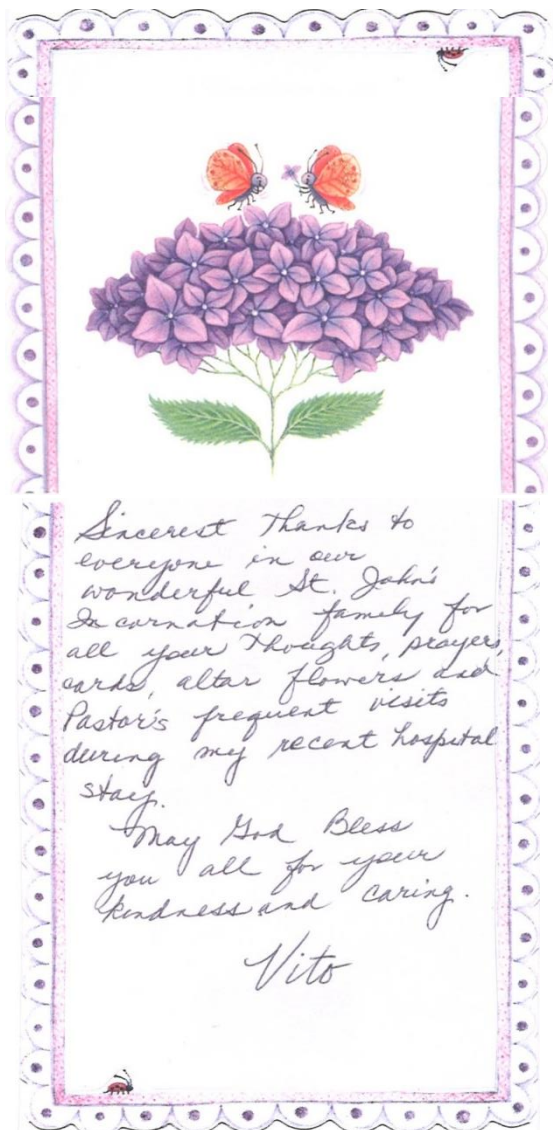 Sincerest Thanks to
everyone in our
wonderful St. John's
Incarnation family for
all your thoughts, prayers,
cards, altar flowers and
Pastor's frequent visits
during my recent hospital
stay.
May God Bless
you all for your
kindness and caring.
Vito